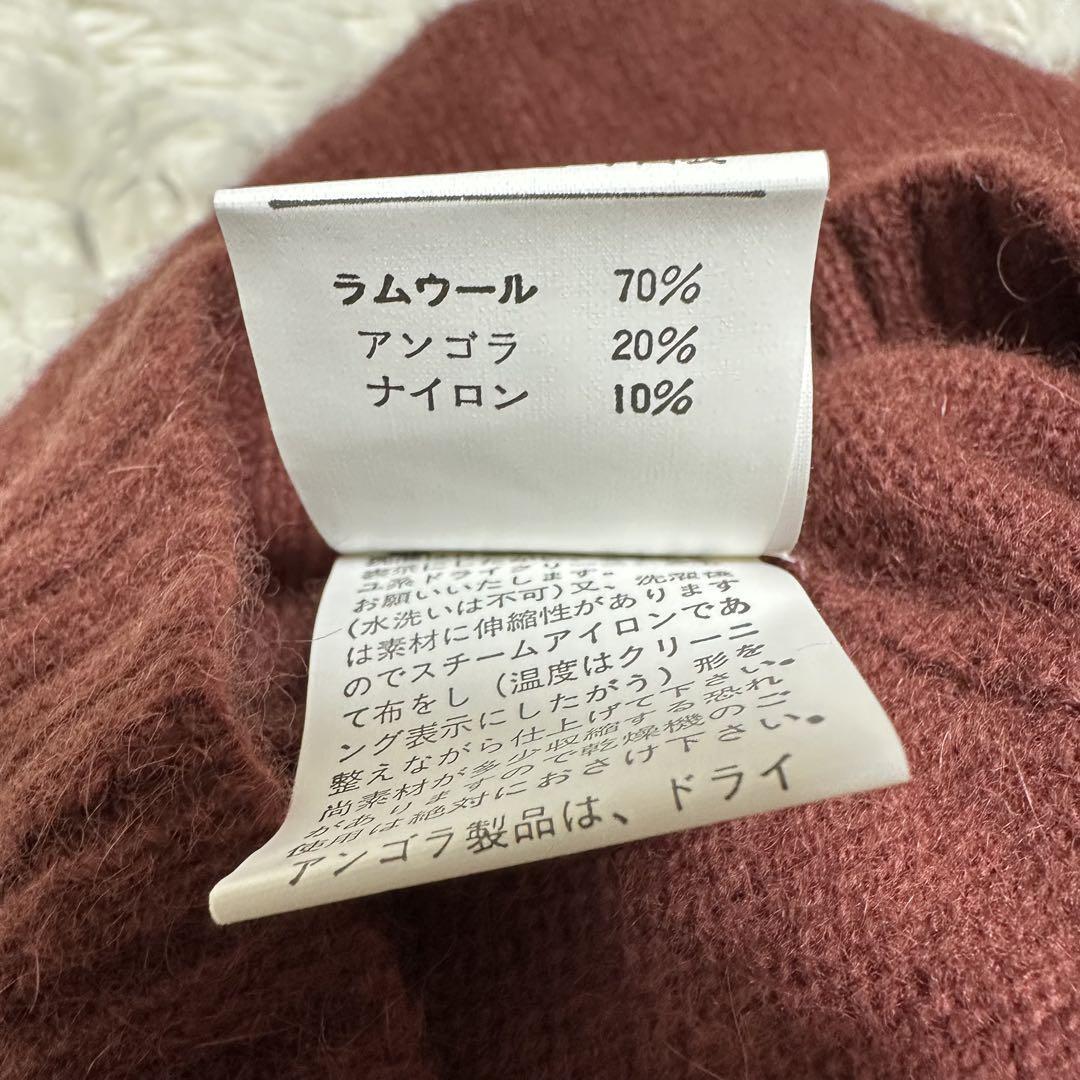 ラムウール 70%
アンゴラ 20%
ナイロン 10%
ユ系ドライクリ
お願いいたします。
(水洗いは不可)又、洗濯後
は素材に伸縮性があります
のでスチームアイロンであ
て布をし(温度はクリーニ
ング表示にしたがう)形を
整えながら仕上げて下さい。
尚素材が多少収縮する恐れ
がありますので乾燥機のご
使用は絶対におさけ下さい。
アンゴラ製品は、ドライ